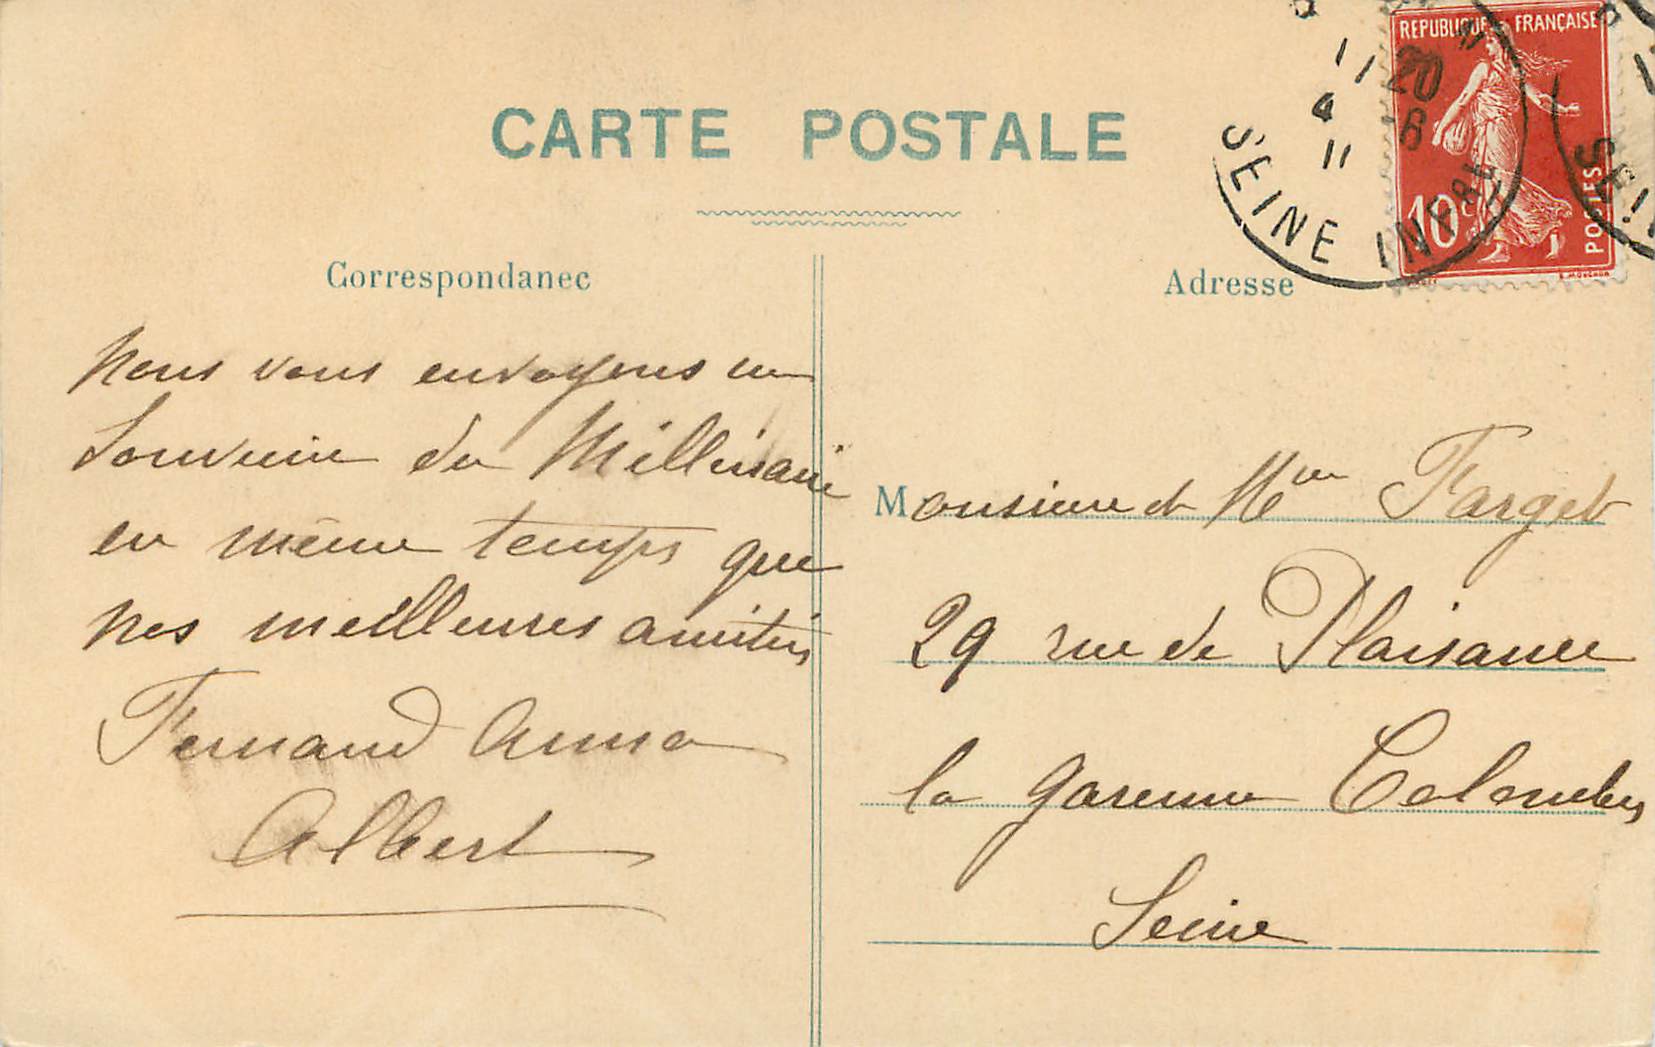 CARTE POSTALE
REPUBLIQUE FRANÇAISE
10c
POSTES
11 20
4 8
11
SEINE INFRE
SEIN
Correspondanec
Adresse
Nous vous envoyons un
Souvenir du Millénaire
en même temps que
nos meilleures amitiés
Fernand Anna
Albert
Monsieur et Mme Farget
29 rue de Plaisance
la Garenne Colombes
Seine